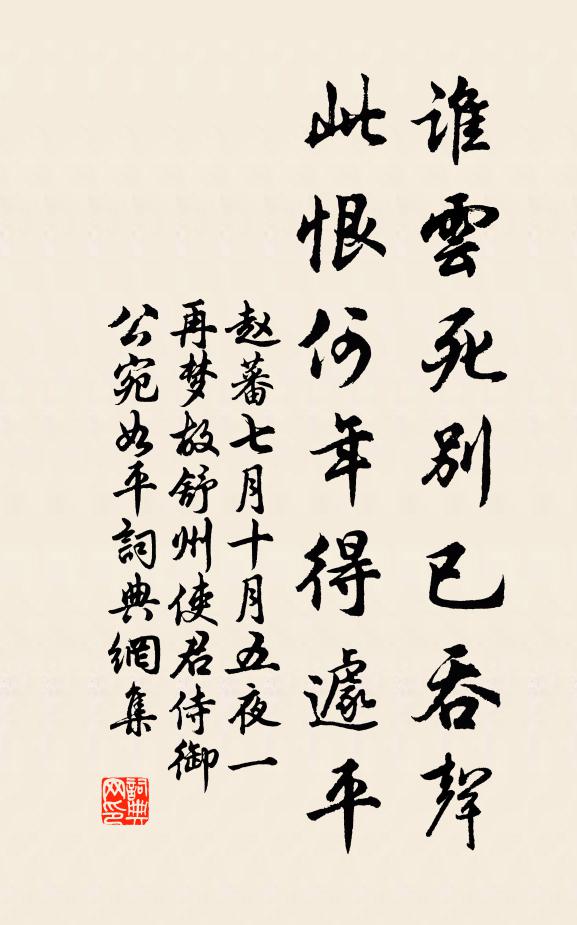 誰雲死別已吞聲
此恨何年得遽平
赵蕃七月十月五夜一
再梦故舒州使君侍御
公宛如平詞典網集
詞典网印